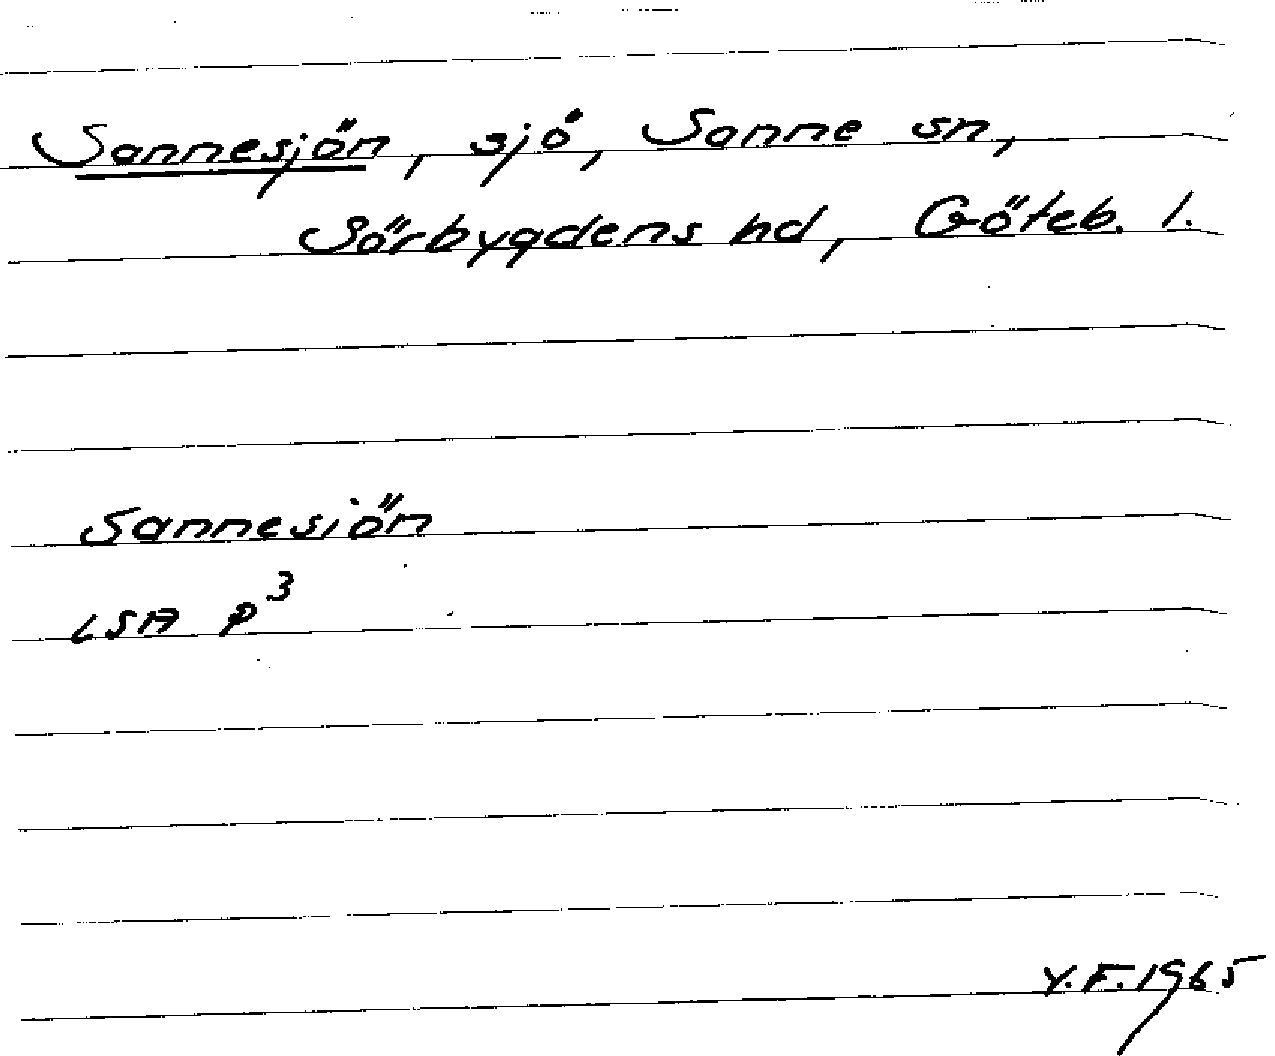 Sannesjön, sjö, Sanne sn,
Sörbygdens hd, Göteb. l.
Sannesiön
LSA P³
Y.F. 1965